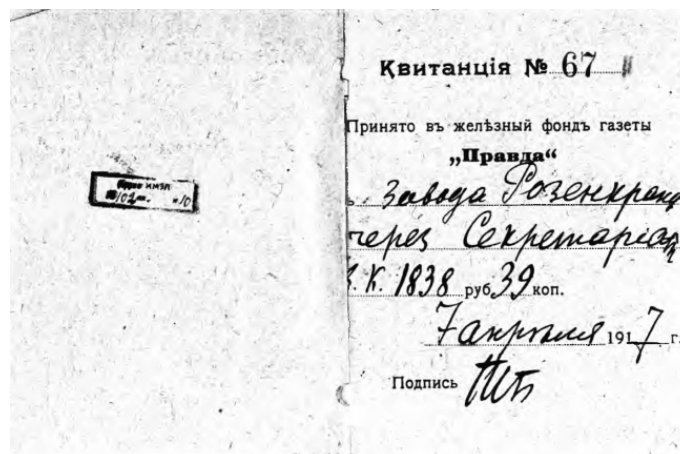 Квитанція № 67
Принято въ желѣзный фондъ газеты
„Правда“
Завода Розенкранц
через Секретариат
К. 1838 руб. 39 коп.
7 апреля 1917 г.
Подпись